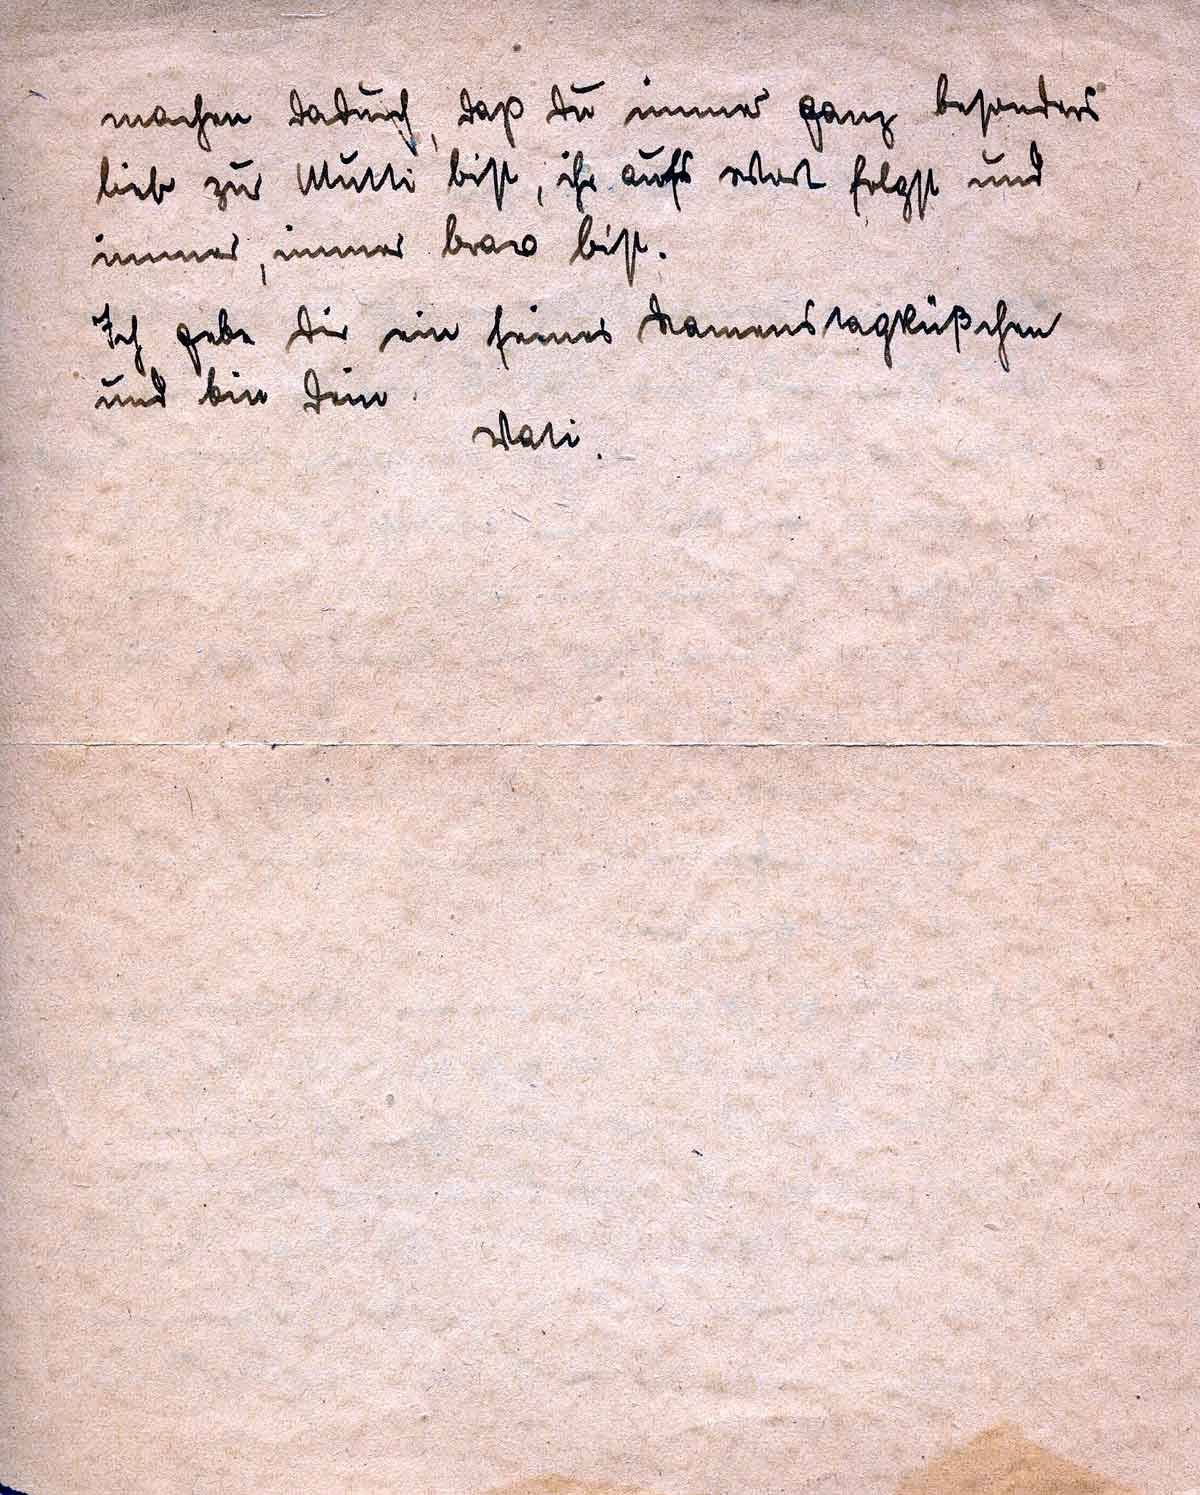 machen dadurch, daß Du immer ganz besonders
lieb zur Mutti bist, ihr aufs Wort folgst und
immer, immer brav bist.
Ich gebe Dir ein feines Namenstagküßchen
und bin Dein
Vati.